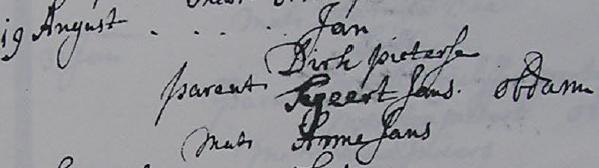 19 August . . . . Jan
Dirk pieterse
parent Segeert Jans. obdam
Mats Anne Jans